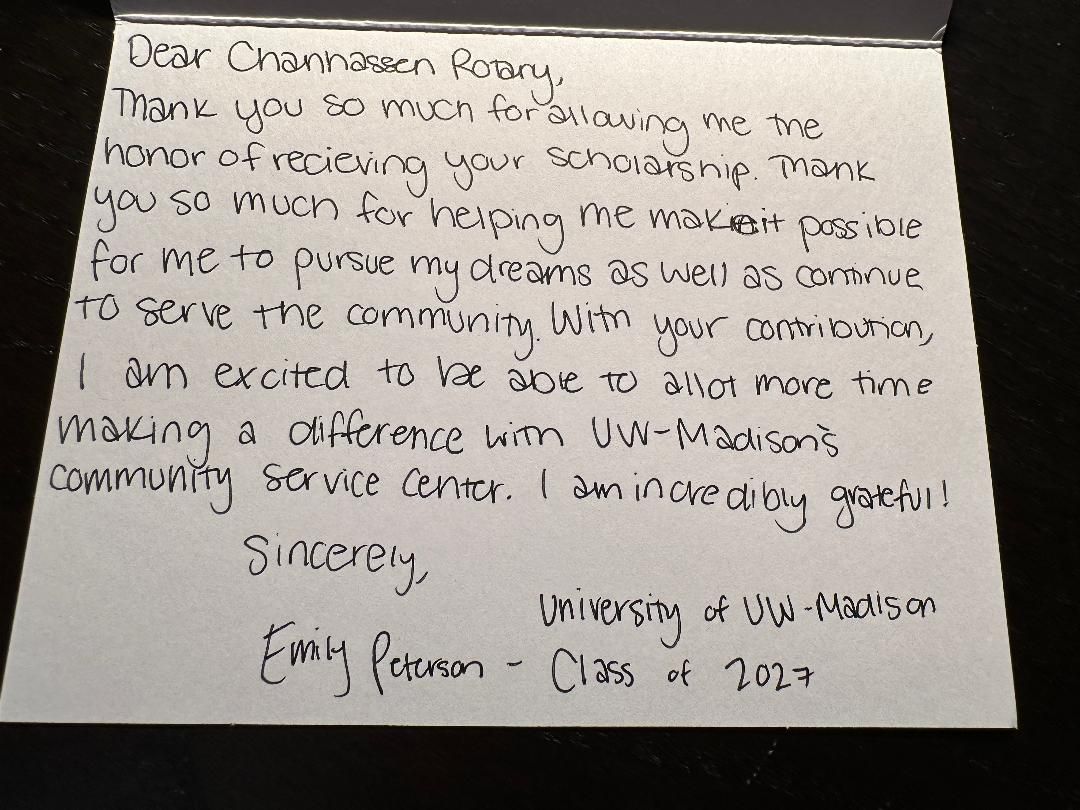 Dear Chanhassen Rotary,
Thank you so much for allowing me the
honor of recieving your scholarship. Thank
you so much for helping me make it possible
for me to pursue my dreams as well as continue
to serve the community. With your contribution,
I am excited to be able to allot more time
making a difference with UW-Madison's
community service center. I am incredibly grateful!
Sincerely,
University of UW-Madison
Emily Peterson - Class of 2027